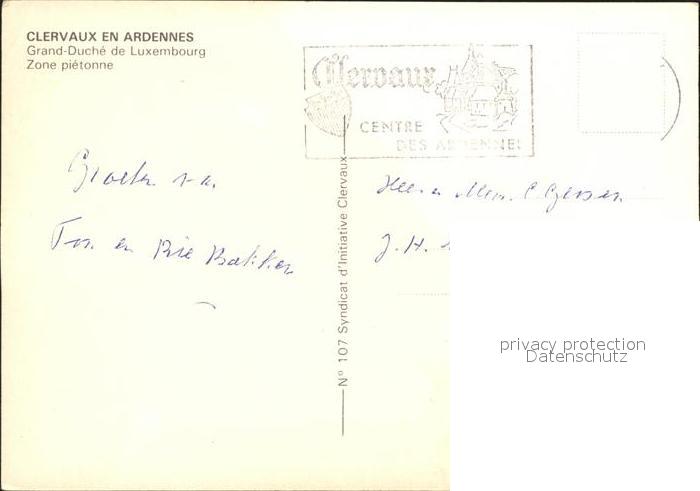 CLERVAUX EN ARDENNES
Grand-Duché de Luxembourg
Zone piétonne
Clervaux
CENTRE
DES ARDENNES
Groeten van
Ton en Rie Bakker
Nº 107 Syndicat d'Initiative Clervaux
Heer en Mevr.
J. H.
privacy protection
Datenschutz